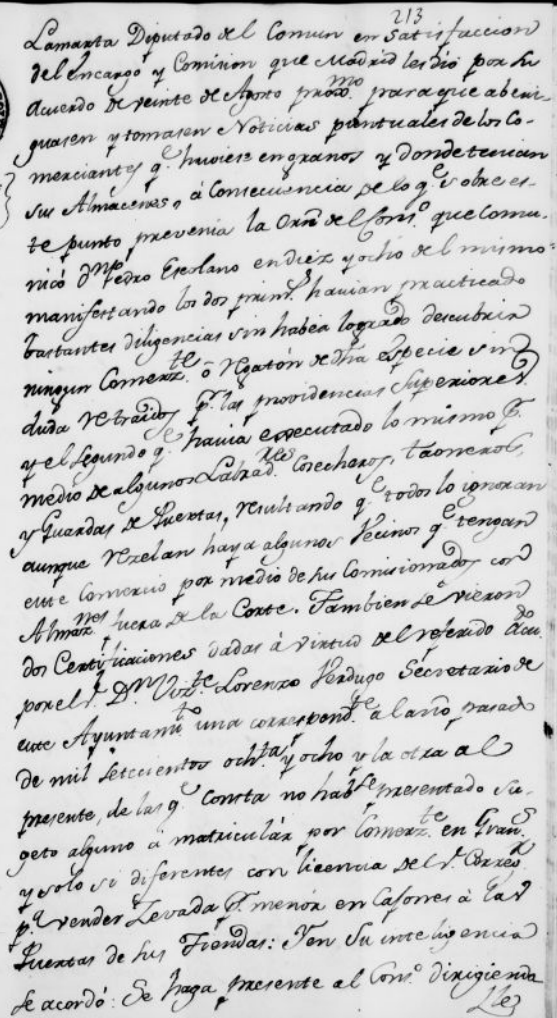 213
Lamarta Diputado del Comun en Satisfaccion
del Encargo y Comision que Madrid les dió por su
Acuerdo de veinte de Agosto proxmo. para que aberi-
guasen y tomasen Noticias puntuales de los Co-
merciantes qe. huviese en granos y donde tenian
sus Almacenes, á Consecuencia de lo qe. sobre es-
te punto prevenia la Orn. del Conso. que Comu-
nicó Dn. Pedro Escolano en diez y ocho del mismo
manifestando los dos prims. havian practicado
bastantes diligencias sin haber logrado descubrir
ningun Comerzte. ó Regatón de dha especie sin
duda retraidos pr. las providencias Superiores.
y el segundo qe. havia executado lo mismo pr.
medio de algunos Labradres. Cosecheros, taoneros,
y Guardas de Puertas, resultando qe. todos lo ignoran
aunque rezelan haya algunos Vecinos qe. tengan
este Comercio por medio de sus Comisionados con
Almaznes. fuera de la Corte. Tambien se vieron
dos Certificaciones dadas á virtud del referido Acudo.
por el Sr. Dn. Vizte. Lorenzo Verdugo Secretario de
este Ayuntamto. una correspondte. al año pasado
de mil setecientos ochta. y ocho y la otra al
presente, de las qe. Consta no habse. presentado su-
geto alguno á matricular por Comerzte. en Grans.
y solo si diferentes con licencia del Sr. Corregr.
pa. vender Zevada pr. menór en Cajones á las
Puertas de sus Tiendas: Y en su inteligencia
se acordó: Se haga presente al Conso. dirigiendo